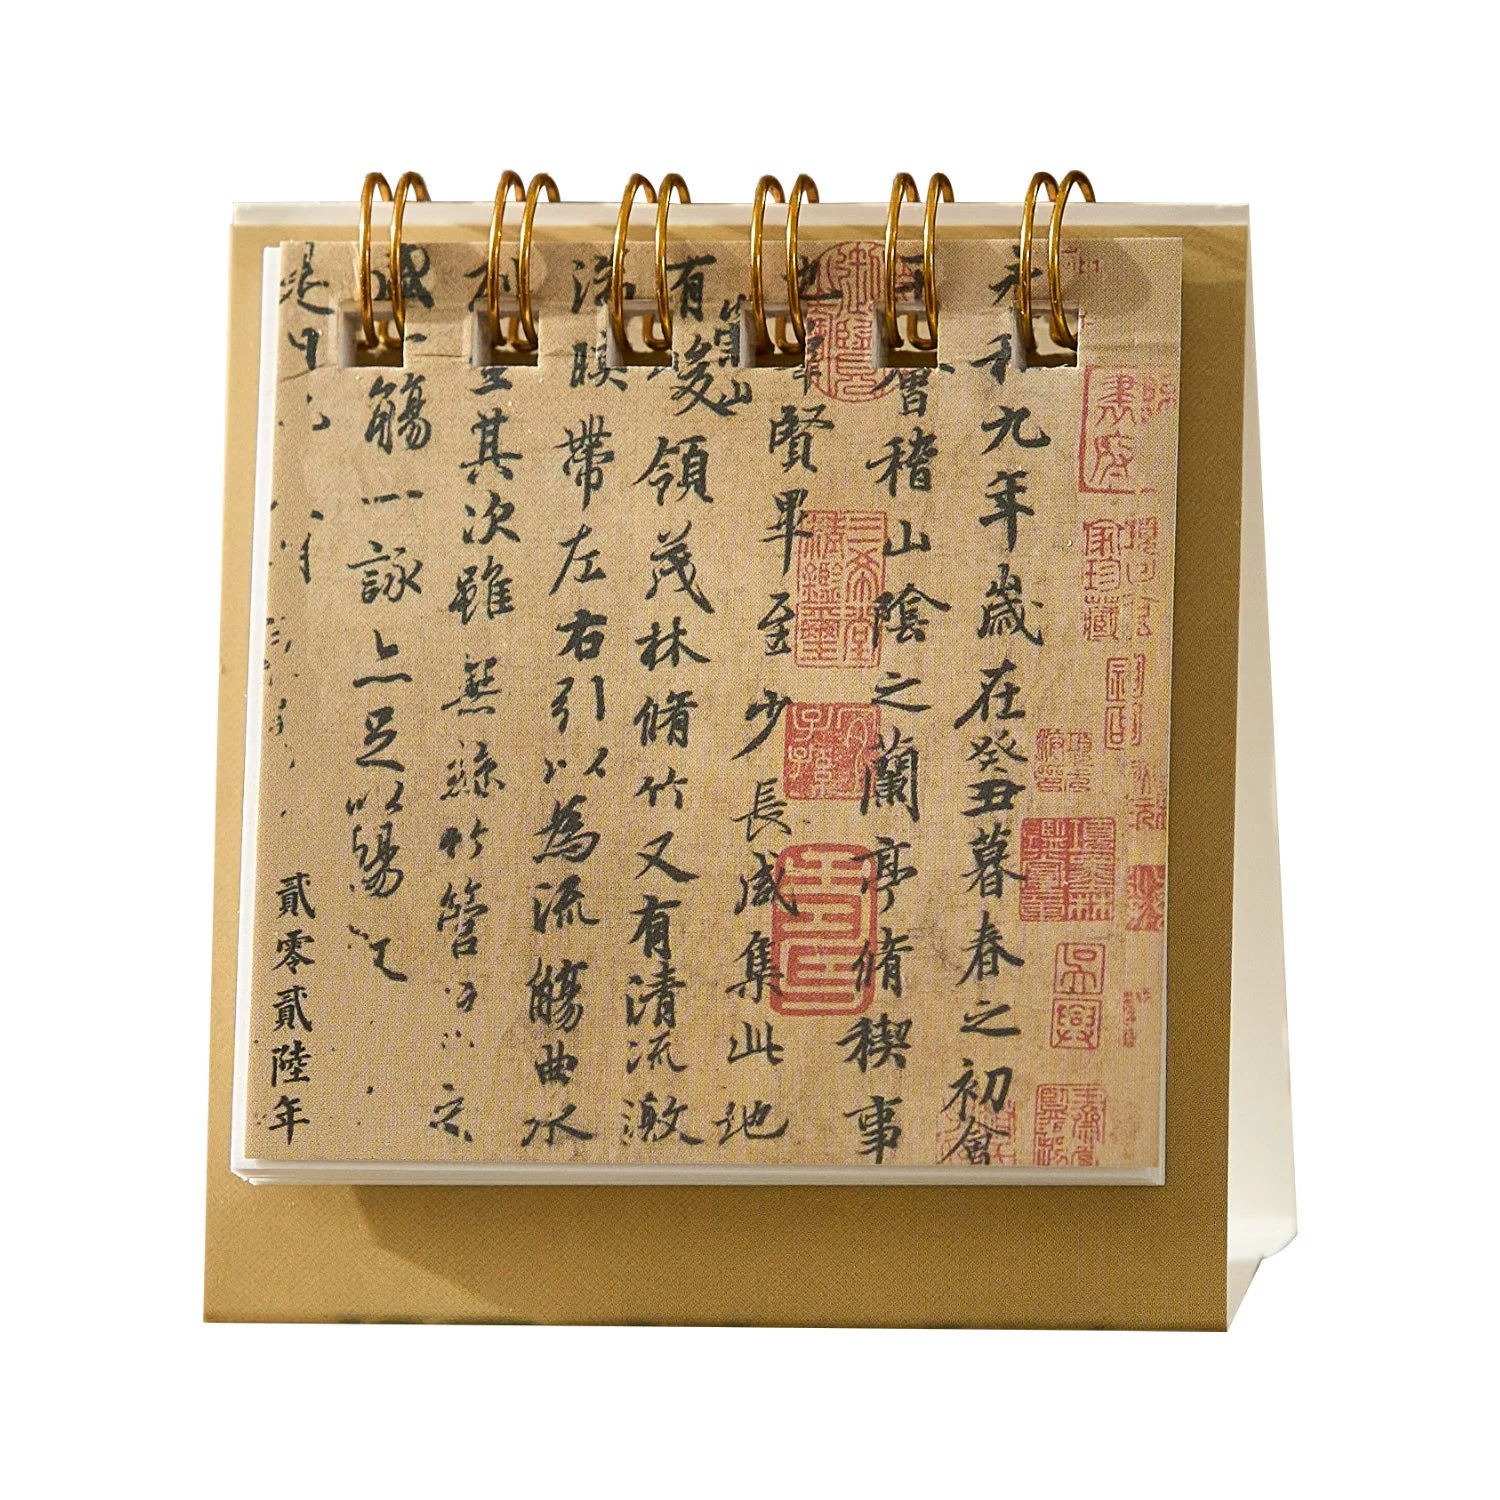 永和九年歲在癸丑暮春之初會
于會稽山陰之蘭亭脩稧事
也羣賢畢至少長咸集此地
有崇山峻領茂林脩竹又有清流激
湍暎帶左右引以為流觴曲水
列坐其次雖無絲竹管
盛一觴一詠亦足以暢
是日
貳零貳陸年
三希堂精鑑璽
宜子孫
家珍藏
吳興